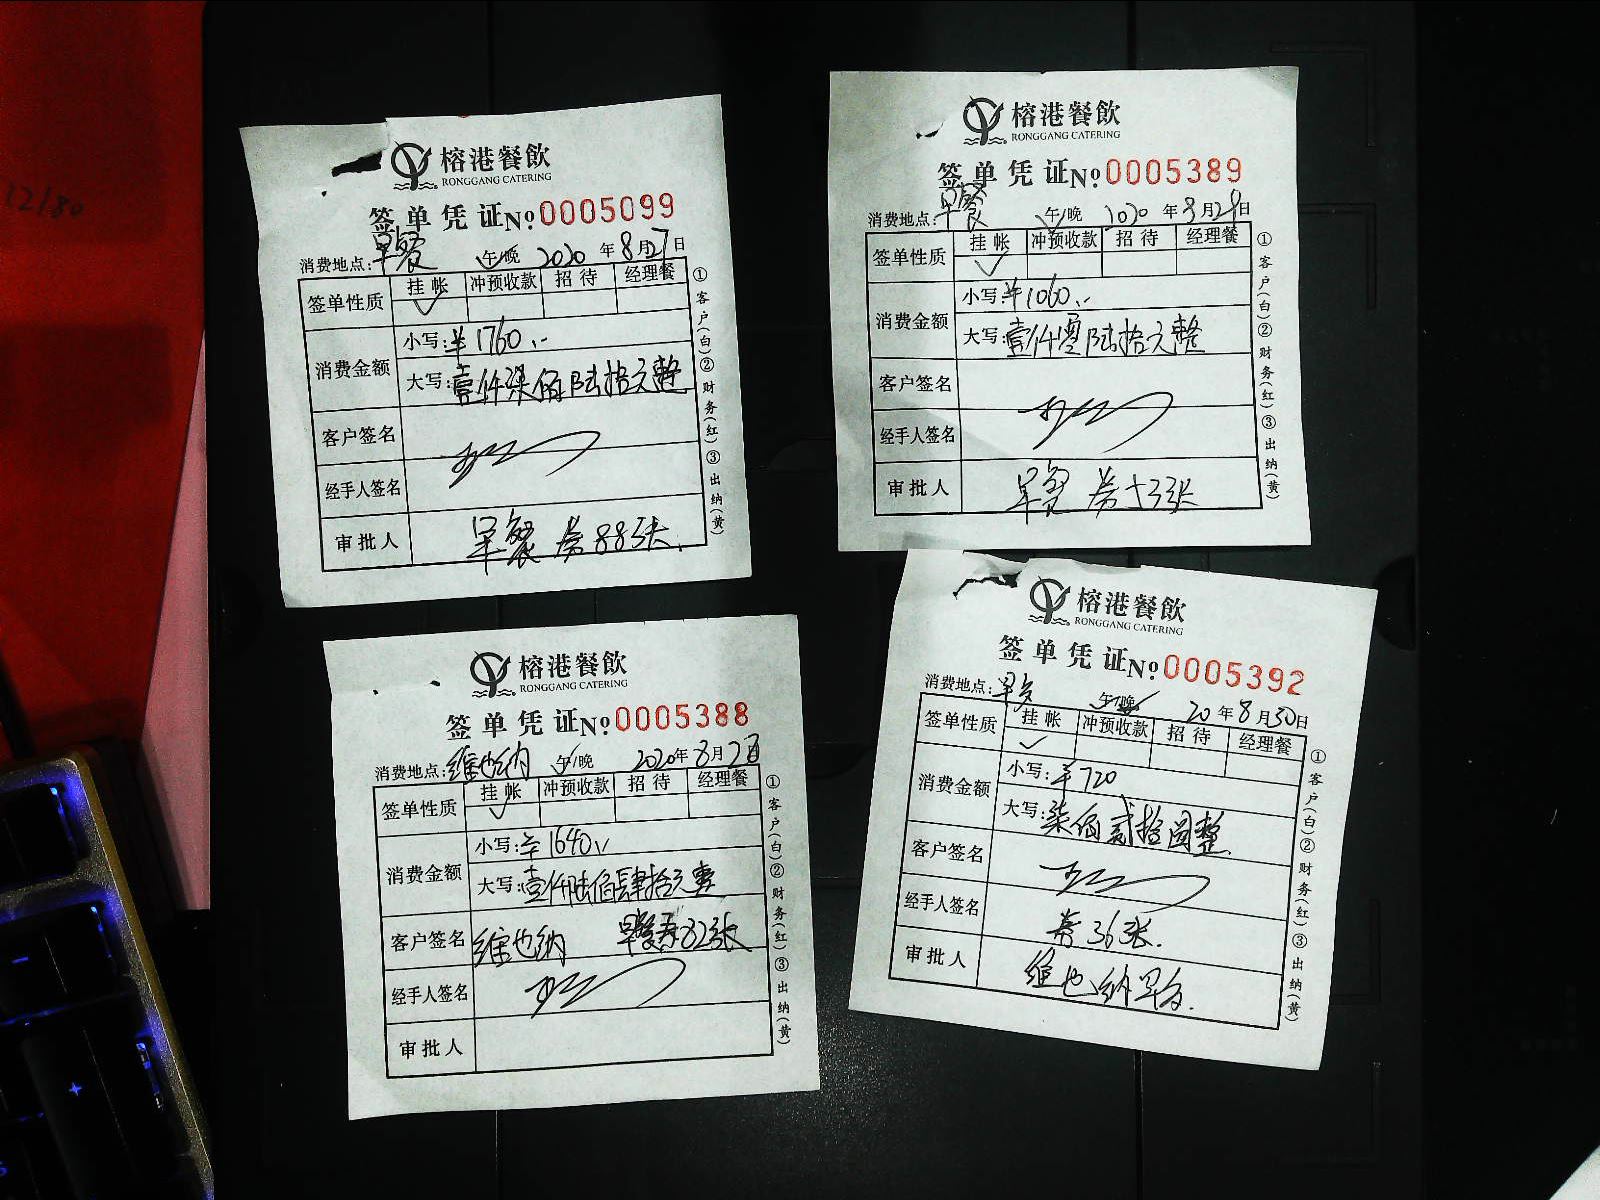 榕港餐飲
RONGGANG CATERING
签单凭证 No 0005099
消费地点: 早餐 午/晚 2020 年 8 月 27 日
签单性质 挂帐 冲预收款 招待 经理餐
✓
消费金额 小写: ¥1760.-
大写: 壹仟柒佰陆拾元整
客户签名
经手人签名
审批人 早餐 券 88张.
①客户(白)②财务(红)③出纳(黄)
榕港餐飲
RONGGANG CATERING
签单凭证 No 0005389
消费地点: 早餐 午/晚 2020 年 8 月 29 日
签单性质 挂帐 冲预收款 招待 经理餐
✓
消费金额 小写: ¥1060.-
大写: 壹仟零陆拾元整
客户签名
经手人签名
审批人 早餐 券 53张
①客户(白)②财务(红)③出纳(黄)
榕港餐飲
RONGGANG CATERING
签单凭证 No 0005388
消费地点: 维也纳 午/晚 2020 年 8 月 日
签单性质 挂帐 冲预收款 招待 经理餐
✓
消费金额 小写: ¥1640.-
大写: 壹仟陆佰肆拾元整
客户签名 维也纳 早餐券82张
经手人签名
审批人
①客户(白)②财务(红)③出纳(黄)
榕港餐飲
RONGGANG CATERING
签单凭证 No 0005392
消费地点: 早 午/晚 20 年 8 月 30 日
签单性质 挂帐 冲预收款 招待 经理餐
✓
消费金额 小写: ¥720
大写: 柒佰贰拾圆整
客户签名
经手人签名 券36张.
审批人 维也纳早.
①客户(白)②财务(红)③出纳(黄)